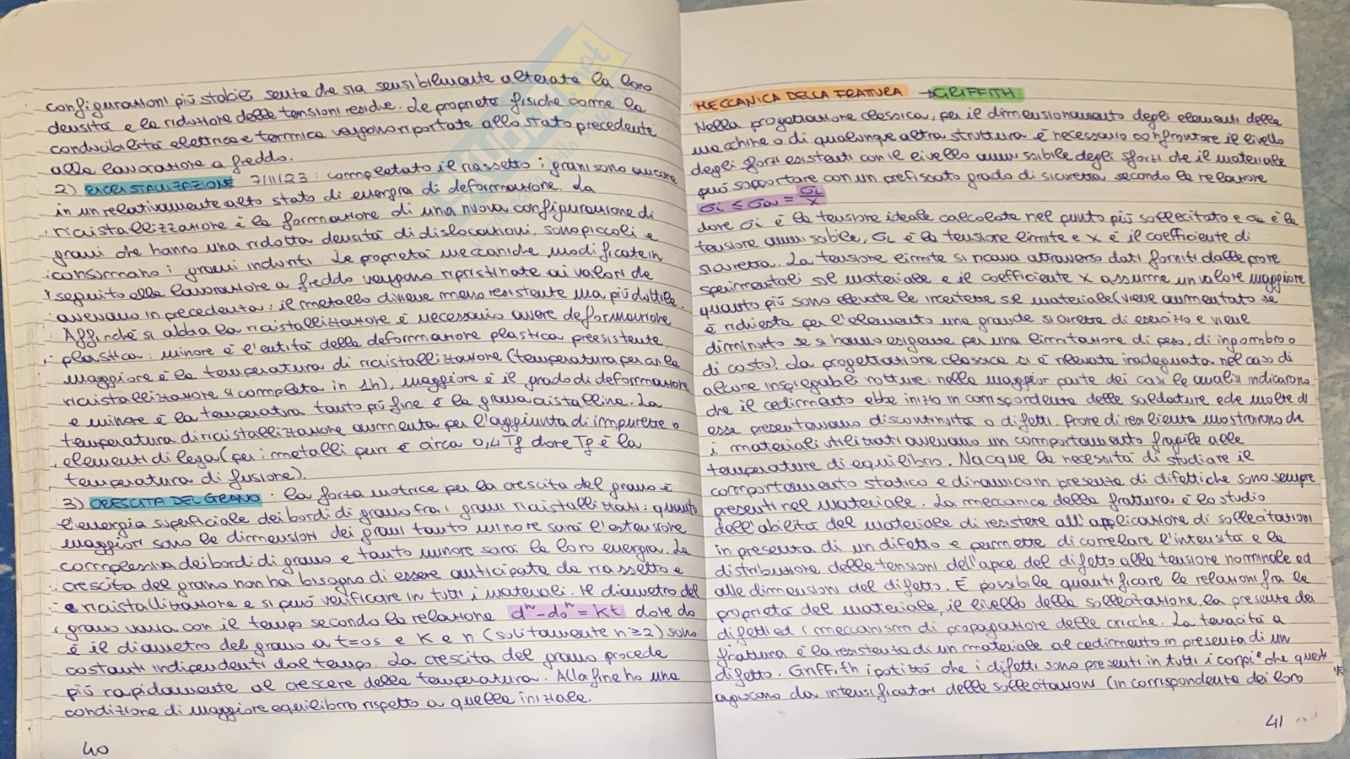 configurazioni più stabili senza che sia sensibilmente alterata la loro
densità e la riduzione delle tensioni residue. Le proprietà fisiche come la
conducibilità elettrica e termica vengono riportate allo stato precedente
alla lavorazione a freddo.
2) RICRISTALLIZZAZIONE 7/11/23: completato il riassetto i grani sono ancora
in un relativamente alto stato di energia di deformazione. La
ricristallizzazione è la formazione di una nuova configurazione di
grani che hanno una ridotta densità di dislocazioni, sono piccoli e
consumano i grani induriti. Le proprietà meccaniche modificate in
seguito alla lavorazione a freddo vengono ripristinate ai valori che
avevano in precedenza: il metallo diviene meno resistente ma più duttile.
Affinché si abbia la ricristallizzazione è necessario avere deformazione
plastica: minore è l'entità della deformazione plastica preesistente
maggiore è la temperatura di ricristallizzazione (temperatura per cui la
ricristallizzazione è completa in 1h), maggiore è il grado di deformazione
e minore è la temperatura tanto più fine è la grana cristallina. La
temperatura di ricristallizzazione aumenta per l'aggiunta di impurezze o
elementi di lega (per i metalli puri è circa 0,4Tf dove Tf è la
temperatura di fusione).
3) CRESCITA DEL GRANO: la forza motrice per la crescita del grano è
l'energia superficiale dei bordi di grano fra i grani ricristallizzati: quanto
maggiori sono le dimensioni dei grani tanto minore sarà l'estensione
complessiva dei bordi di grano e tanto minore sarà la loro energia. La
crescita del grano non ha bisogno di essere anticipata da riassetto e
ricristallizzazione e si può verificare in tutti i materiali. Il diametro del
grano varia con il tempo secondo la relazione dⁿ-d₀ⁿ=kt dove do
è il diametro del grano a t=0s e K e n (solitamente n≥2) sono
costanti indipendenti dal tempo. La crescita del grano procede
più rapidamente al crescere della temperatura. Alla fine ho una
condizione di maggiore equilibrio rispetto a quella iniziale.
40
MECCANICA DELLA FRATTURA → GRIFFITH
Nella progettazione classica, per il dimensionamento degli elementi delle
macchine o di qualunque altra struttura è necessario confrontare il livello
degli sforzi esistenti con il livello ammissibile degli sforzi che il materiale
può sopportare con un prefissato grado di sicurezza secondo la relazione
σi ≤ σa = σL/X
dove σi è la tensione ideale calcolata nel punto più sollecitato e σa è la
tensione ammissibile, σL è la tensione limite e X è il coefficiente di
sicurezza. La tensione limite si ricava attraverso dati forniti dalle prove
sperimentali sul materiale e il coefficiente X assume un valore maggiore
quanto più sono elevate le incertezze sul materiale (viene aumentato se
è richiesta per l'elemento una grande sicurezza di esercizio e viene
diminuito se si hanno esigenze per una limitazione di peso, di ingombro o
di costo). La progettazione classica si è rilevata inadeguata nel caso di
alcune inspiegabili rotture: nella maggior parte dei casi le analisi indicarono
che il cedimento ebbe inizio in corrispondenza delle saldature e che molte di
esse presentavano discontinuità o difetti. Prove di resilienza mostrarono che
i materiali utilizzati avevano un comportamento fragile alle
temperature di equilibrio. Nacque la necessità di studiare il
comportamento statico e dinamico in presenza di difetti che sono sempre
presenti nel materiale. La meccanica della frattura è lo studio
dell'abilità del materiale di resistere all'applicazione di sollecitazioni
in presenza di un difetto e permette di correlare l'intensità e la
distribuzione delle tensioni dell'apice del difetto alla tensione nominale ed
alle dimensioni del difetto. È possibile quantificare le relazioni fra le
proprietà del materiale, il livello della sollecitazione, la presenza dei
difetti ed i meccanismi di propagazione delle cricche. La tenacità a
frattura è la resistenza di un materiale al cedimento in presenza di un
difetto. Griffith ipotizzò che i difetti sono presenti in tutti i corpi e che questi
agiscano da intensificatori delle sollecitazioni (in corrispondenza dei loro
41